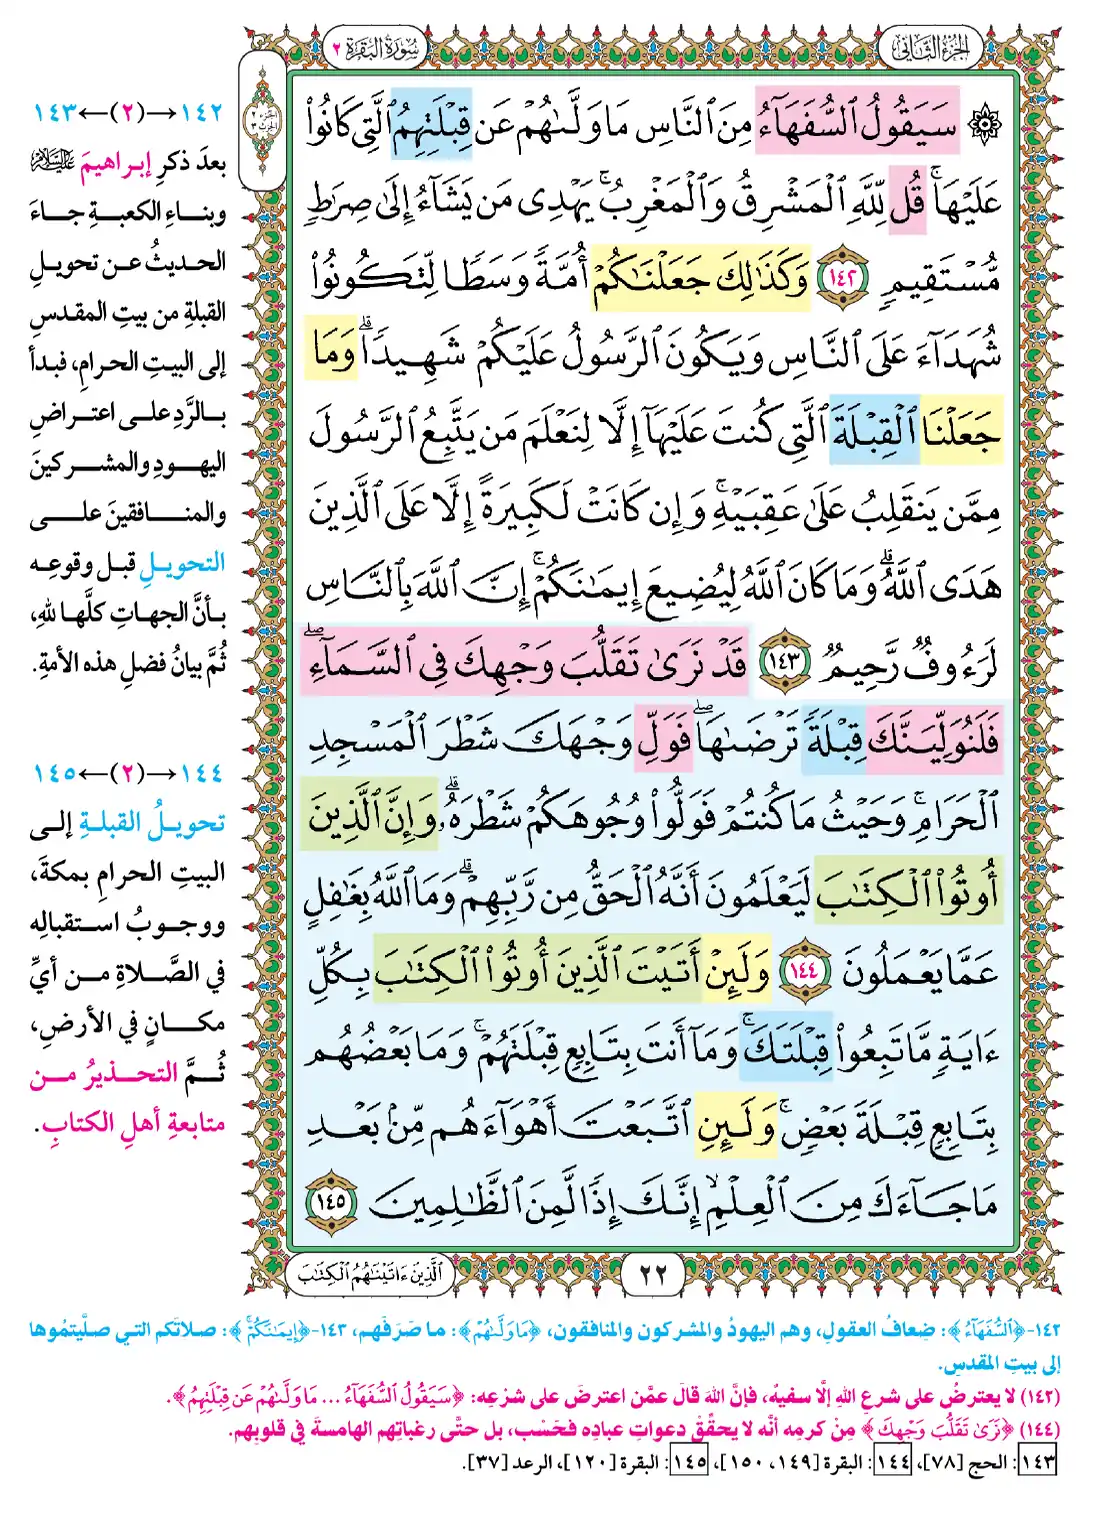 الجزء الثاني
سورة البقرة ٢
سَيَقُولُ ٱلسُّفَهَآءُ مِنَ ٱلنَّاسِ مَا وَلَّىٰهُمْ عَن قِبْلَتِهِمُ ٱلَّتِى كَانُوا۟
عَلَيْهَا ۚ قُل لِّلَّهِ ٱلْمَشْرِقُ وَٱلْمَغْرِبُ ۚ يَهْدِى مَن يَشَآءُ إِلَىٰ صِرَٰطٍ
مُّسْتَقِيمٍ ١٤٢ وَكَذَٰلِكَ جَعَلْنَٰكُمْ أُمَّةً وَسَطًا لِّتَكُونُوا۟
شُهَدَآءَ عَلَى ٱلنَّاسِ وَيَكُونَ ٱلرَّسُولُ عَلَيْكُمْ شَهِيدًا ۗ وَمَا
جَعَلْنَا ٱلْقِبْلَةَ ٱلَّتِى كُنتَ عَلَيْهَآ إِلَّا لِنَعْلَمَ مَن يَتَّبِعُ ٱلرَّسُولَ
مِمَّن يَنقَلِبُ عَلَىٰ عَقِبَيْهِ ۚ وَإِن كَانَتْ لَكَبِيرَةً إِلَّا عَلَى ٱلَّذِينَ
هَدَى ٱللَّهُ ۗ وَمَا كَانَ ٱللَّهُ لِيُضِيعَ إِيمَٰنَكُمْ ۚ إِنَّ ٱللَّهَ بِٱلنَّاسِ
لَرَءُوفٌ رَّحِيمٌ ١٤٣ قَدْ نَرَىٰ تَقَلُّبَ وَجْهِكَ فِى ٱلسَّمَآءِ ۖ
فَلَنُوَلِّيَنَّكَ قِبْلَةً تَرْضَىٰهَا ۚ فَوَلِّ وَجْهَكَ شَطْرَ ٱلْمَسْجِدِ
ٱلْحَرَامِ ۚ وَحَيْثُ مَا كُنتُمْ فَوَلُّوا۟ وُجُوهَكُمْ شَطْرَهُۥ ۗ وَإِنَّ ٱلَّذِينَ
أُوتُوا۟ ٱلْكِتَٰبَ لَيَعْلَمُونَ أَنَّهُ ٱلْحَقُّ مِن رَّبِّهِمْ ۗ وَمَا ٱللَّهُ بِغَٰفِلٍ
عَمَّا يَعْمَلُونَ ١٤٤ وَلَئِنْ أَتَيْتَ ٱلَّذِينَ أُوتُوا۟ ٱلْكِتَٰبَ بِكُلِّ
ءَايَةٍ مَّا تَبِعُوا۟ قِبْلَتَكَ ۚ وَمَآ أَنتَ بِتَابِعٍ قِبْلَتَهُمْ ۚ وَمَا بَعْضُهُم
بِتَابِعٍ قِبْلَةَ بَعْضٍ ۚ وَلَئِنِ ٱتَّبَعْتَ أَهْوَآءَهُم مِّنۢ بَعْدِ
مَا جَآءَكَ مِنَ ٱلْعِلْمِ ۙ إِنَّكَ إِذًا لَّمِنَ ٱلظَّٰلِمِينَ ١٤٥
٢٢
ٱلَّذِينَ ءَاتَيْنَٰهُمُ ٱلْكِتَٰبَ
١٤٢→(٢)←١٤٣
بعدَ ذكرِ إبراهيمَ عليه السلام
وبناءِ الكعبةِ جاءَ
الحديثُ عن تحويلِ
القبلةِ من بيتِ المقدسِ
إلى البيتِ الحرامِ، فبدأ
بالرَّدِ على اعتراضِ
اليهودِ والمشركينَ
والمنافقينَ على
التحويلِ قبل وقوعِه
بأنَّ الجهاتِ كلَّها للهِ،
ثُمَّ بيانُ فضلِ هذه الأمةِ.
١٤٤→(٢)←١٤٥
تحويلُ القبلةِ إلى
البيتِ الحرامِ بمكةَ،
ووجوبُ استقبالِه
في الصَّلاةِ من أيِّ
مكانٍ في الأرضِ،
ثُمَّ التحذيرُ من
متابعةِ أهلِ الكتابِ.
١٤٢-﴿ٱلسُّفَهَآءُ﴾: ضِعافُ العقولِ، وهم اليهودُ والمشركون والمنافقون، ﴿مَا وَلَّىٰهُمْ﴾: ما صَرَفَهم، ١٤٣-﴿إِيمَٰنَكُمْ﴾: صلاتَكم التي صلَّيتمُوها
إلى بيتِ المقدسِ.
(١٤٢) لا يعترضُ على شرعِ اللهِ إلَّا سفيهٌ، فإنَّ اللهَ قالَ عمَّن اعترضَ على شرْعِه: ﴿سَيَقُولُ ٱلسُّفَهَآءُ ... مَا وَلَّىٰهُمْ عَن قِبْلَتِهِمُ﴾.
(١٤٤) ﴿نَرَىٰ تَقَلُّبَ وَجْهِكَ﴾ مِنْ كرمِه أنَّه لا يحقِّقُ دعواتِ عبادِه فحَسْب، بل حتَّى رغباتِهم الهامسةَ في قلوبِهم.
١٤٣: الحج [٧٨]، ١٤٤: البقرة [١٤٩، ١٥٠]، ١٤٥: البقرة [١٢٠]، الرعد [٣٧].